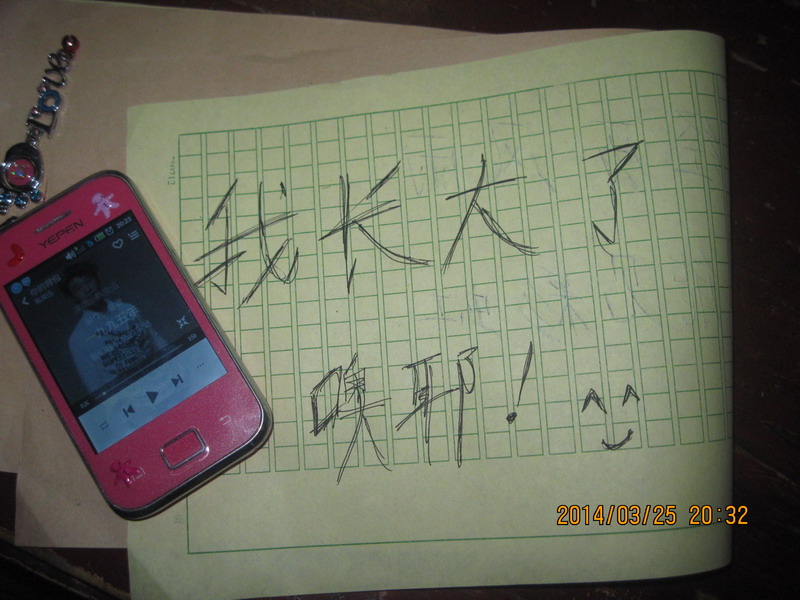 LOVE
YEPEN
我长大了
噢耶！
2014/03/25 20:32